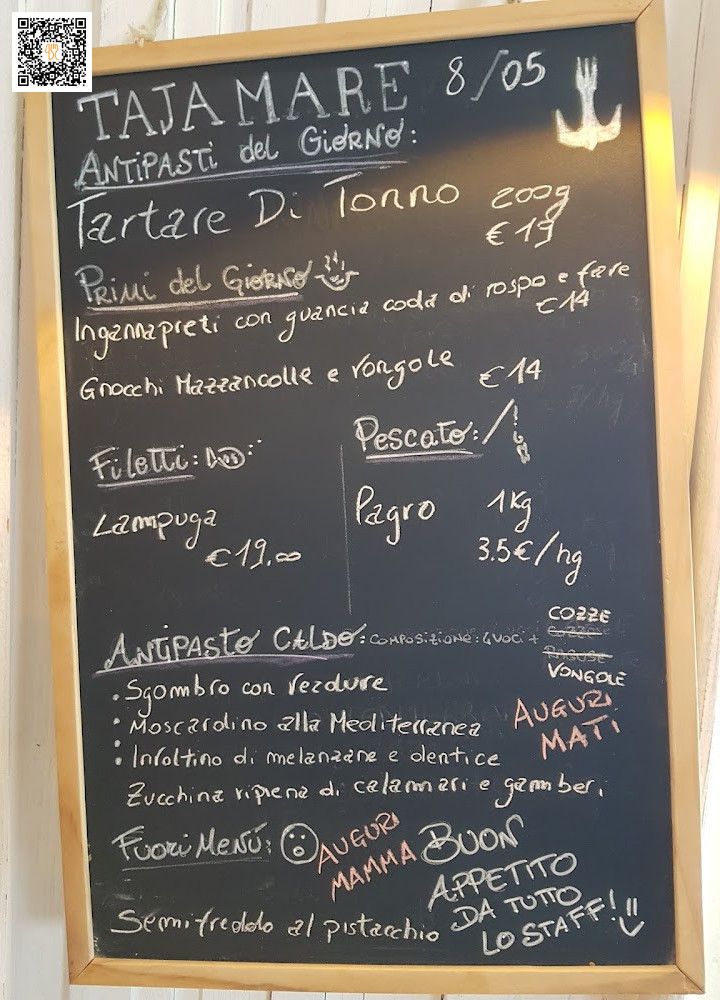 TAJAMARE 8/05
ANTIPASTI del GIORNO:
Tartare Di Tonno 200g
€19
PRIMI del GIORNO
Ingannapreti con guancia coda di rospo e fave
€14
Gnocchi Mazzancolle e vongole €14
Filetti:
Lampuga
€19,00
Pescato:
Pagro 1Kg
3.5€/hg
ANTIPASTO CALDO: COMPOSIZIONE: 4 VOCI +
COZZE
COZZE
RAGUSE
VONGOLE
• Sgombro con verdure
• Moscardino alla Mediterranea
• Involtino di melanzane e dentice
Zucchina ripiena di calamari e gamberi
AUGURI
MATI
FUORI MENÚ:
AUGURI
MAMMA
Semifreddo al pistacchio
BUON
APPETITO
DA TUTTO
LO STAFF!!